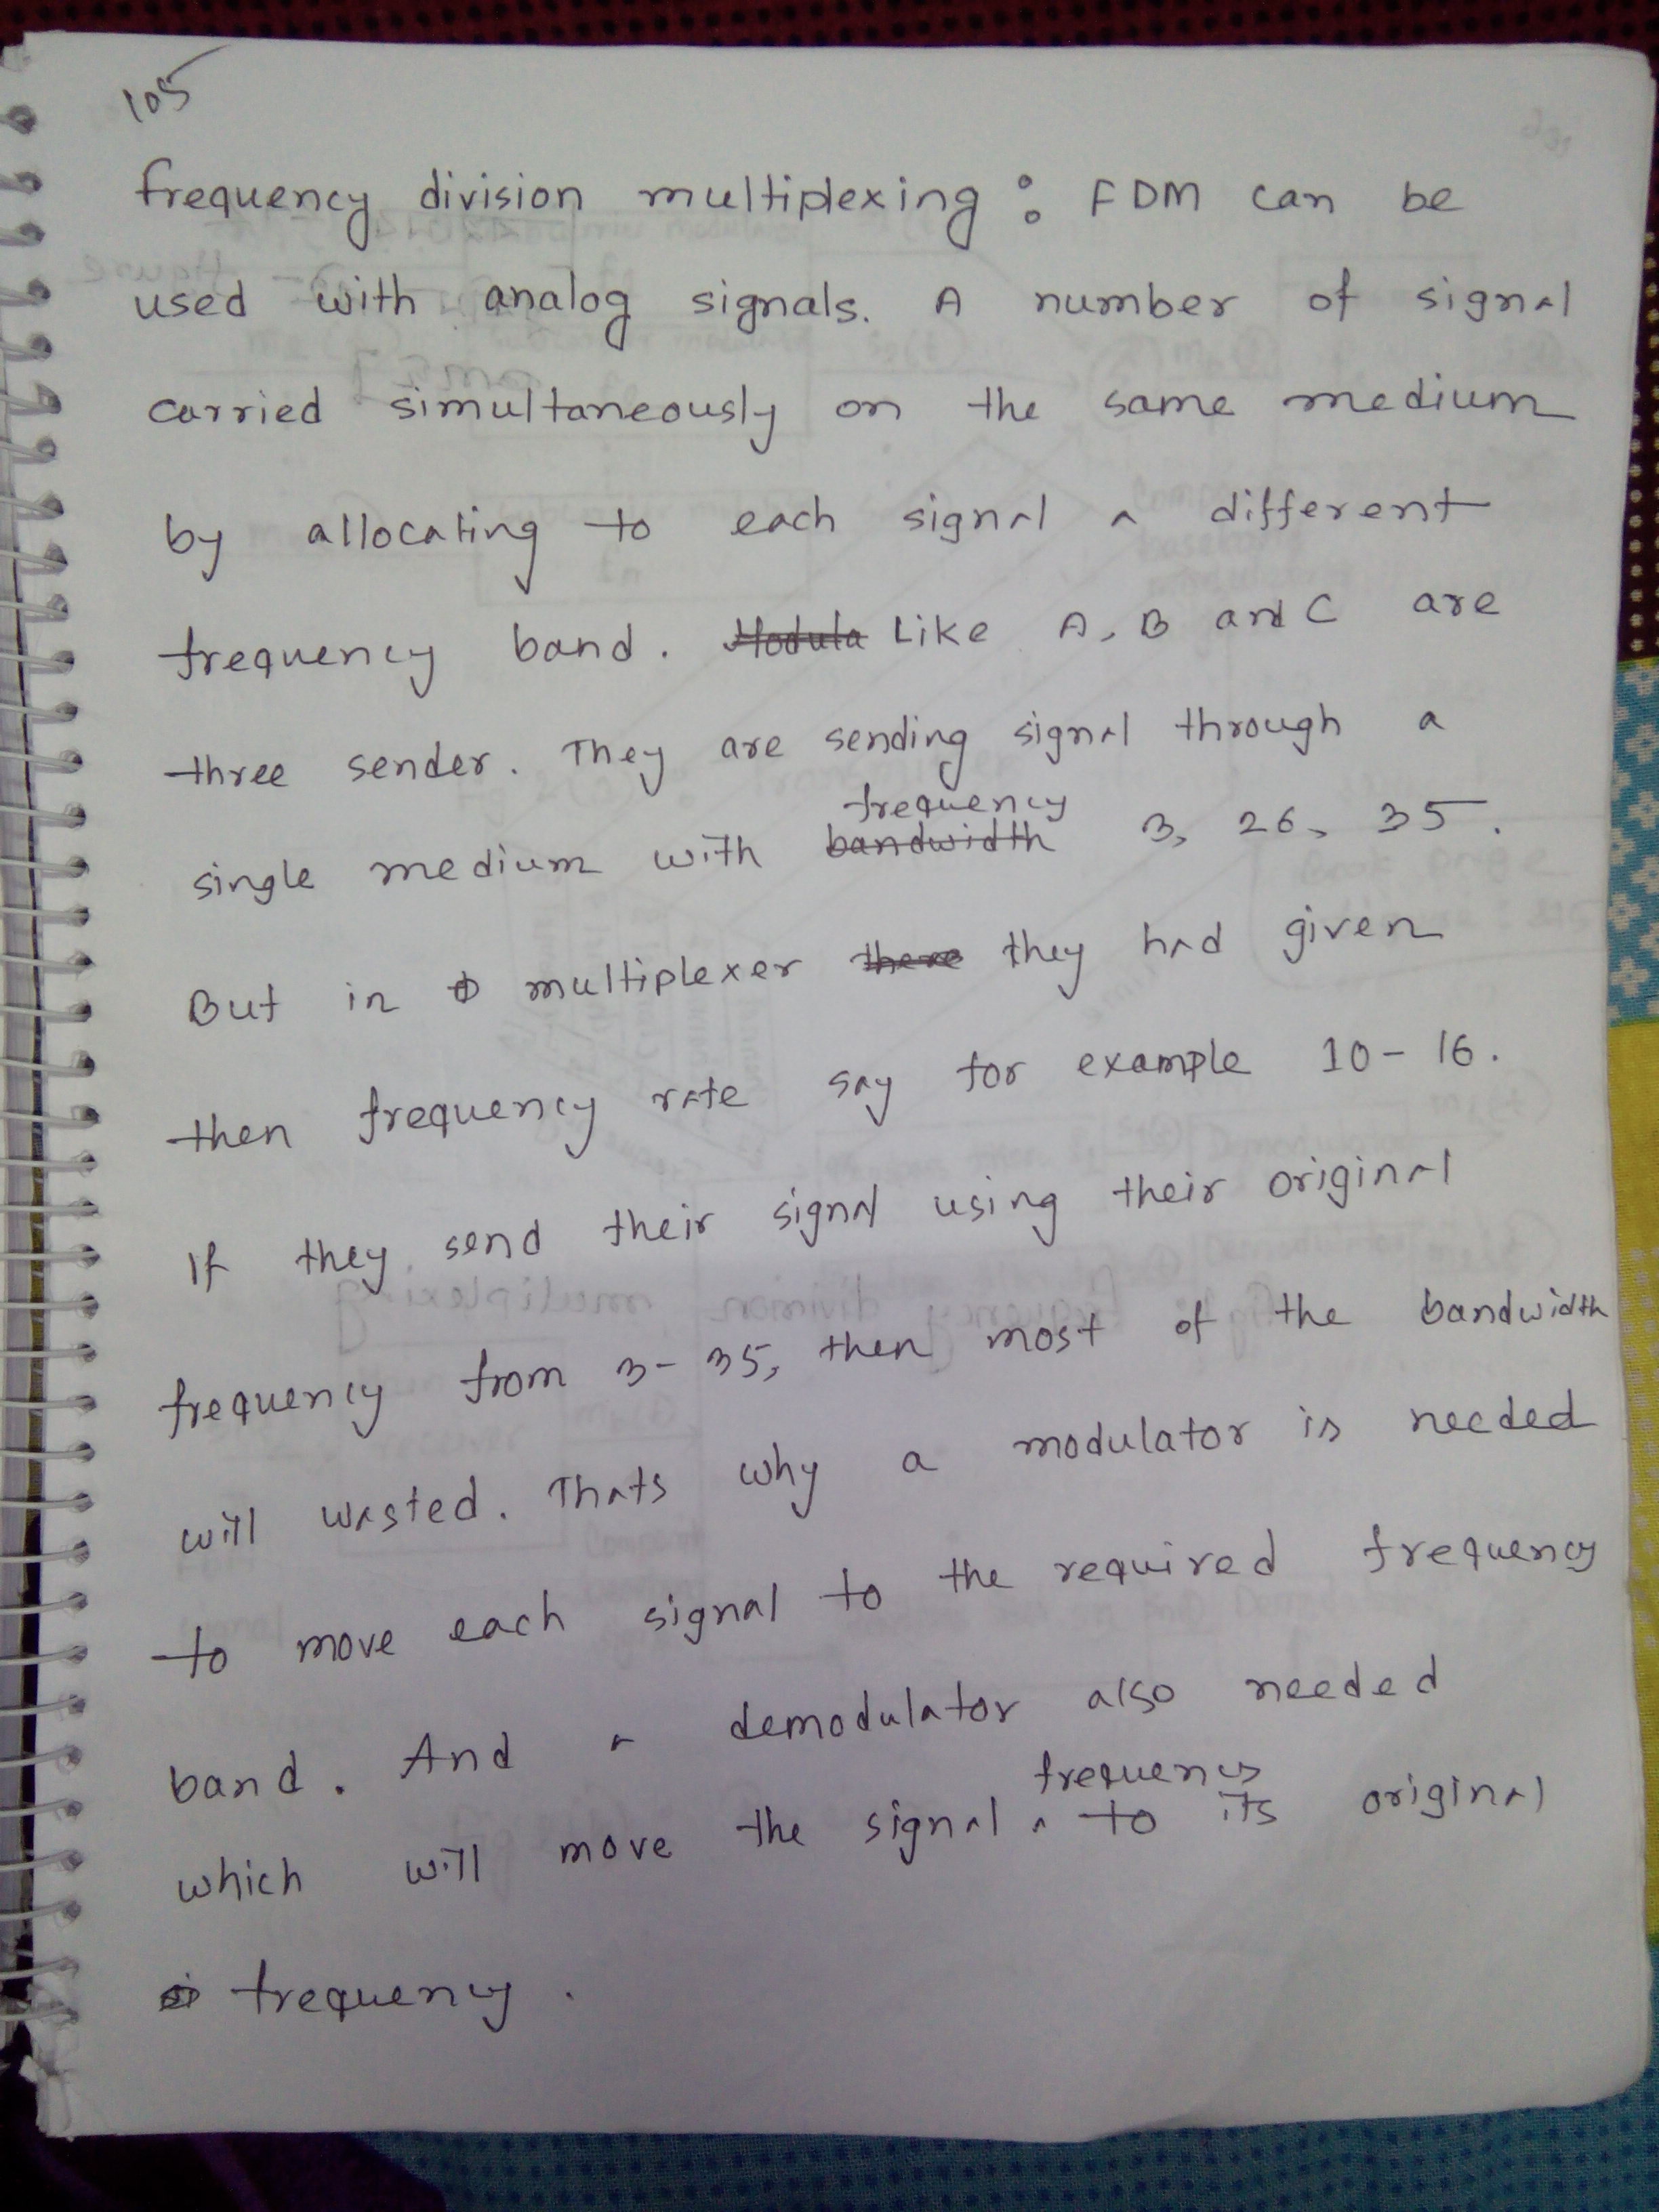 105
frequency division multiplexing : FDM can be
used with analog signals. A number of signal
carried simultaneously on the same medium
by allocating to each signal a different
frequency band. Modula Like A, B and C are
three sender. They are sending signal through a
frequency
single medium with bandwidth 3, 26, 35.
But in multiplexer there they had given
then frequency rate say for example 10 - 16.
If they send their signal using their original
frequency from 3 - 35, then most of the bandwidth
will wasted. Thats why a modulator is needed
to move each signal to the required frequency
band. And a demodulator also needed
frequency
which will move the signal ^ to its original
frequency.